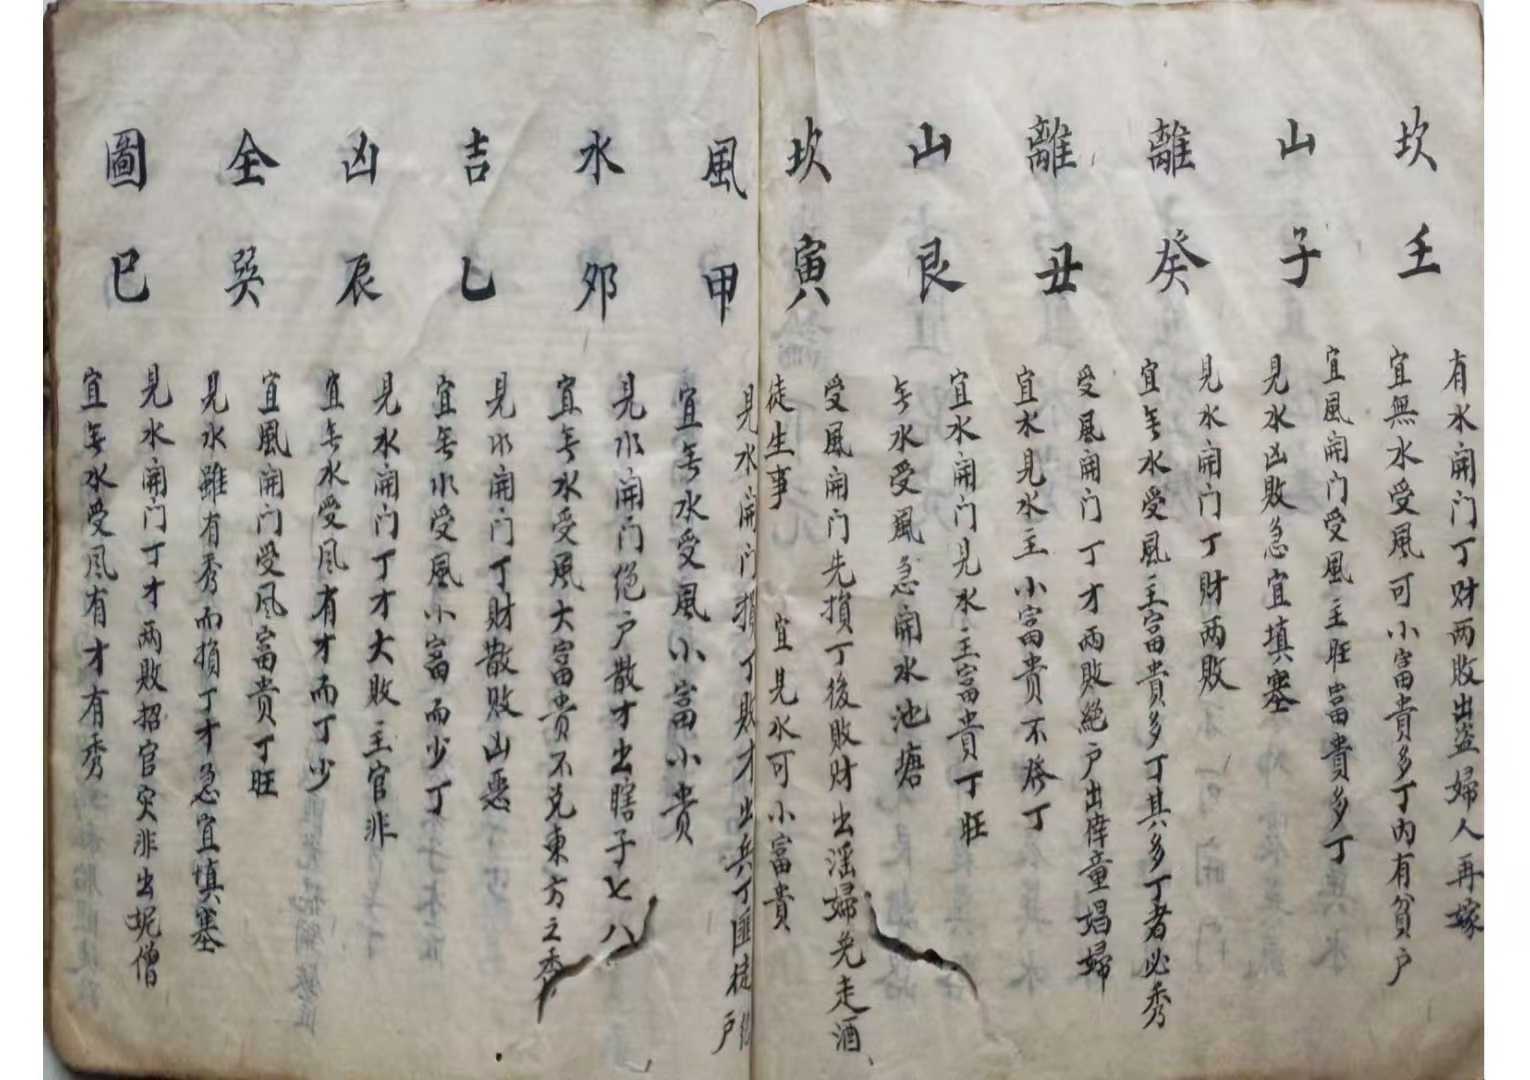 坎山離離山坎
壬子癸丑艮寅
有水開门丁财两败出盗婦人再嫁
宜無水受風可小富貴多丁内有貧户
宜風開门受風主旺富貴多丁
見水凶敗急宜填塞
見水開门丁財两敗
宜无水受風主富貴多丁其多丁者必秀
受風開门丁才两敗絶户出僮童娼婦
宜水見水主小富貴不發丁
宜水開门見水主富貴丁旺
无水受風急開水池塘
受風開门先損丁後敗財出滛婦免走酒
徒生事 宜見水可小富貴
風水吉凶全圖
甲夘乙辰巽巳
見水開门損丁敗才出兵丁匪徒户
宜无水受風小富小貴
見水開门绝户散才出瞎子七八
宜无水受風大富貴不兑東方之秀
見水開门丁財散敗凶惡
宜无水受風小富而少丁
見水開门丁才大敗主官非
宜无水受風有才而丁少
宜風開门受風富貴丁旺
見水雖有秀而損丁才急宜填塞
見水開门丁才两敗招官灾非出妮僧
宜无水受風有才有秀